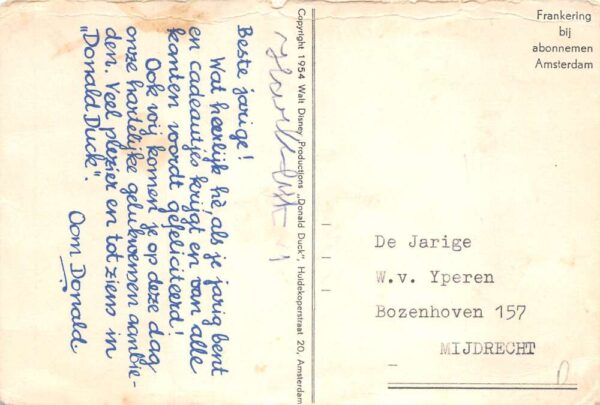 Beste jarige!
Wat heerlijk hè, als je jarig bent
en cadeautjes krijgt en van alle
kanten wordt gefeliciteerd!
Ook wij komen je op deze dag
onze hartelijke gelukwensen aanbie-
den. Veel plezier en tot ziens in
„Donald Duck".
Oom Donald
Copyright 1954 Walt Disney Productions „Donald Duck", Huidekoperstraat 20, Amsterdam
Frankering
bij
abonnemen
Amsterdam
De Jarige
W.v. Yperen
Bozenhoven 157
MIJDRECHT